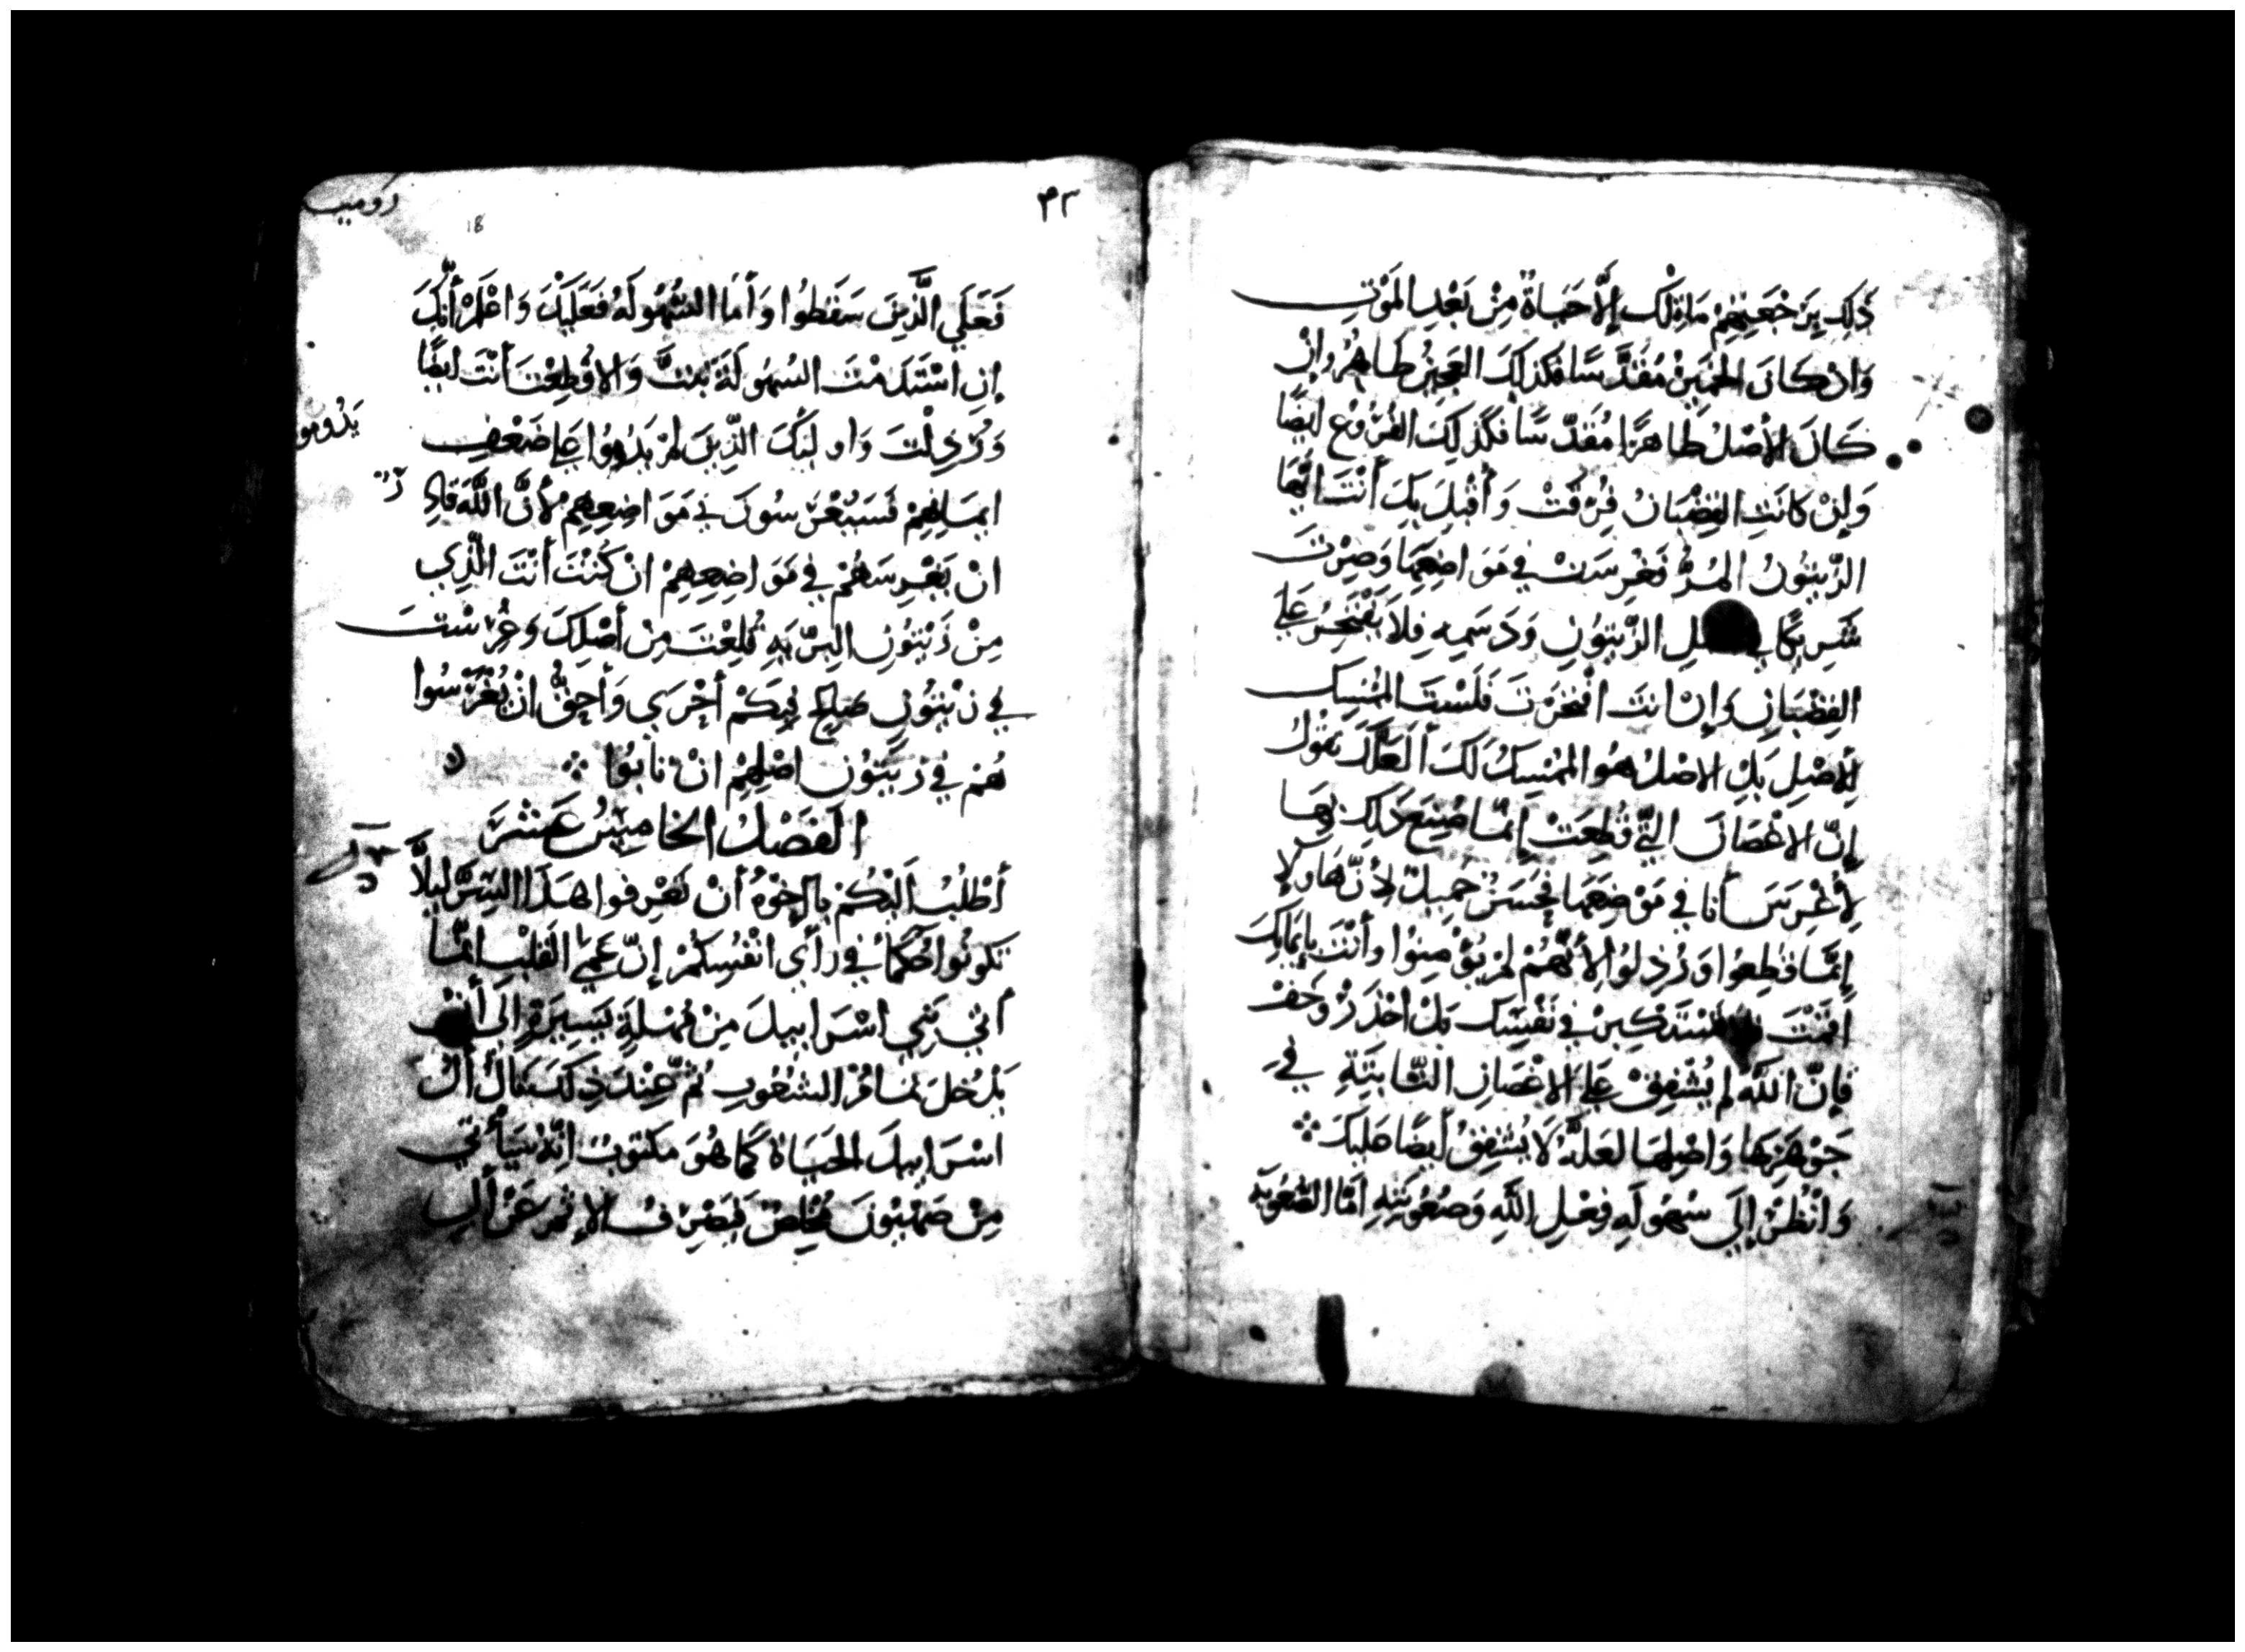 ذَلِكَ بِرَجْعَتِهِمْ مَا ذَلِكَ إِلَّا حَيَاةٌ مِنْ بَعْدِ المَوْتِ
وَان كَانَ الخَمِيْرُ مُقَدَّسًا فَكَذَلِكَ العَجِيْنُ طَاهِرٌ وان
كَانَ الأَصْلُ طَاهِرًا مُقَدَّسًا فَكَذَلِكَ الفُرُوعُ ايضًا
وَإِنْ كَانَتِ القِضْبَانُ فُرِقَتْ وَأُقْبِلَ بِكَ أَنْتَ ايُّهَا
الزَّيْتُونُ المُرُّ فَغُرِسَتْ فِي مَوَاضِعِهَا وَصِرْتَ
شَرِيكًا فِي الزَّيْتُونِ وَدَسَمِهِ فَلاَ يَفْتَخِرْ عَلَى
القِضْبَانِ وَإِنْ انتَ افْتَخَرْتَ فَلَسْتَ المُمْسِكَ
لِلأَصْلِ بَلِ الاصْلُ هُوَ المُمْسِكُ لَكَ أَلَعَلَّكَ تَقُولُ
إِنَّ الاغْصَانَ الَّتِي قُطِعَتْ إِنَّمَا صُنِعَ ذَلِكَ بِهَا
لأُغْرَسَ أَنَا فِي مَوْضِعِهَا فَحَسَنٌ جَمِيلٌ لأَنَّ هَاولا
إِنَّمَا قُطِعُوا وَرُذِلُوا لأَنَّهُمْ لَمْ يُؤْمِنُوا وأَنْتَ بِإِيمَانِكَ
أَقَمْتَ تَسْتَكْبِرْ فِي نَفْسِكَ بَلْ احْذَرْ وَخَفْ
فَإِنَّ اللهَ لَمْ يُشْفِقْ عَلَى الاغْصَانِ الثَّابِتَةِ فِي
جَوْهَرِهَا وَاصْلِهَا لَعَلَّهُ لاَ يُشْفِقُ أَيضًا عَلَيكَ ⁘
وَانْظُرْ إِلَى سُهُولَةِ فِعْلِ اللهِ وَصُعُوبَتِهِ امَّا الصُّعُوبَة
روميه
٤٣
18
فَعَلَي الَّذِينَ سَقَطُوا وَأَمَّا السُّهُولَةُ فَعَلَيْكَ وَاعْلَمْ أَنَّكَ
إِنِ اسْتَدَمْتَ السُهُولَةَ ثَبَتَّ وَالا قُطِعْتَ أَنْتَ ايضًا
وَرُذِلْتَ وَاولَيِكَ الَّذِينَ لَمْ يَدُومُوا عَلَي ضَعْفِ
يَدُومو
ايمَانِهِمْ فَسَيُغْرَسُونَ فِي مَوَاضِعِهِمْ لأَنَّ اللَّهَ قَادِرٌ
انْ يَغْرِسَهُمْ فِي مَوَاضِعِهِمْ انْ كُنْتَ أَنْتَ الَّذِي
مِنْ زَيْتُونِ البَرِّيَّةِ قُلِعْتَ مِنْ أَصْلِكَ وَغُرِسْتَ
فِي زَيْتُونٍ صَالِحٍ فَبِكَمْ أَحْرَي وَأَحَقُّ انْ يُغْرَسُوا
هُمْ فِي زَيْتُونِ اصْلِهِمْ انْ تَابُوا ⁘
الفَصْلُ الخَامِسُ عَشَرَ
أَطْلُبُ اَلَيْكُمْ يَا اخْوَةُ أَنْ تَعْرِفُوا هَذَا السِّرَّ لَيلاَّ
تَكُونُوا حُكَمَاء فِي رَأْي انْفُسِكُمْ إِنَّ عَمَي القَلْبِ انَّمَا
أُتِيَ بَنِي اسْرَاييلَ مِنْ مُهْلَةٍ يَسِيرَةٍ إِلَي أَنْ
يَدْخُلَ تَمَامُ الشُّعُوبِ ثُمَّ عِنْدَ ذِلكَ يَنَالُ أَلُ
اسْرَاييلَ الحَيَاةَ كَمَا هُوَ مَكْتُوبٌ انَّهُ سَيَأْتِي
مِنْ صِهْيُونَ مُخَلِّصٌ فَيَصْرِفُ الإِثْمَ عَنْ أَلِ